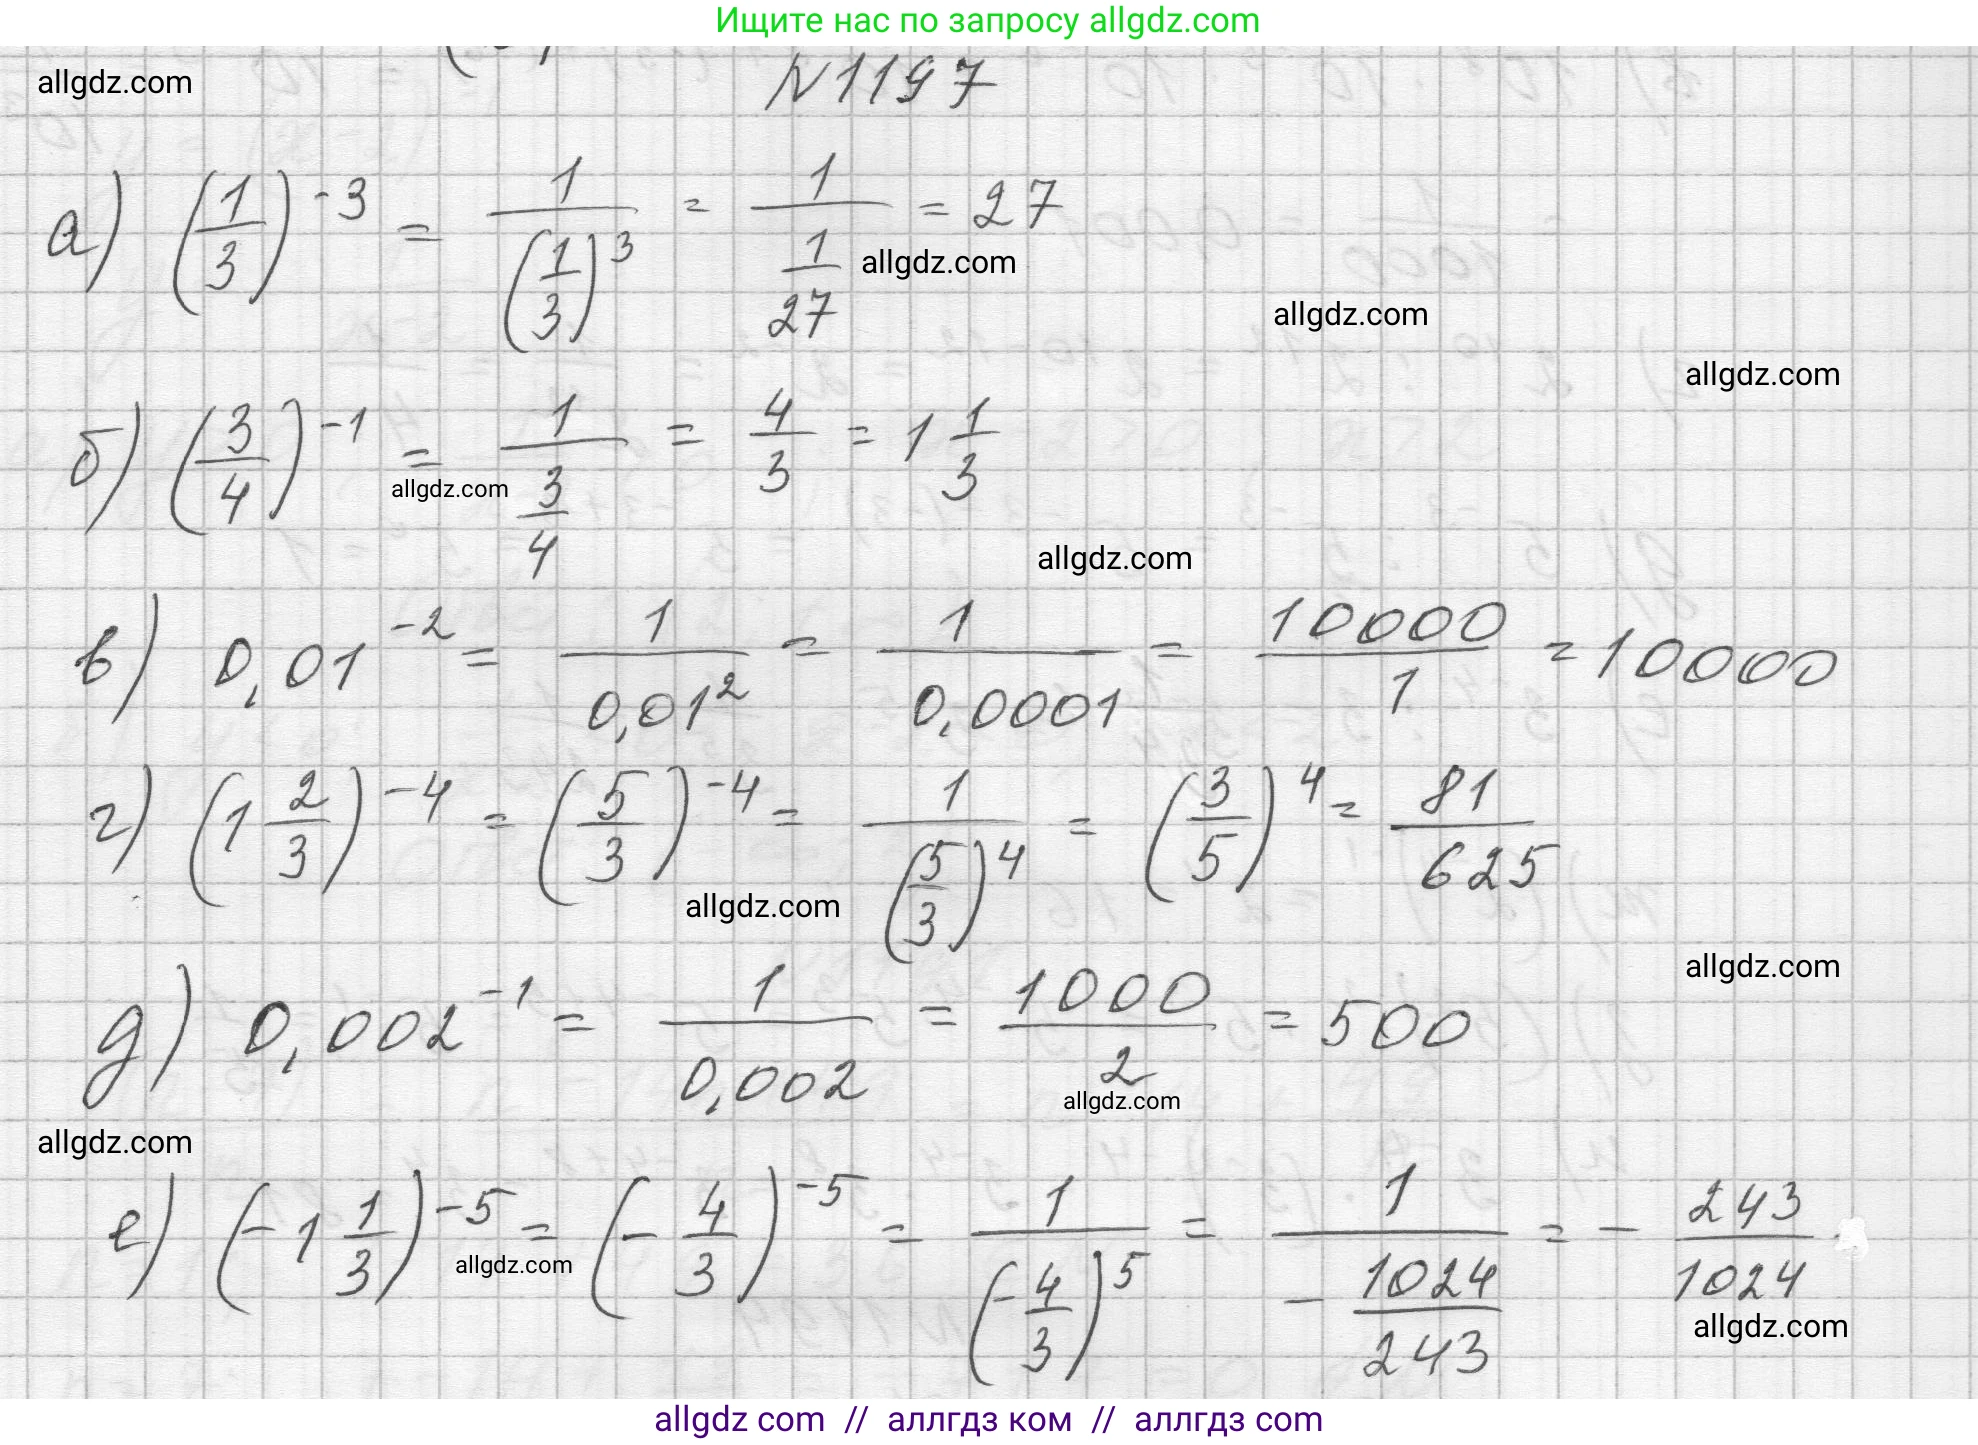 Ищите нас по запросу allgdz.com
allgdz.com
N1197
а) (1/3)^-3 = 1/(1/3)^3 = 1/(1/27) = 27
allgdz.com
allgdz.com
allgdz.com
б) (3/4)^-1 = 1/(3/4) = 4/3 = 1 1/3
allgdz.com
allgdz.com
в) 0,01^-2 = 1/0,01^2 = 1/0,0001 = 10000/1 = 10000
г) (1 2/3)^-4 = (5/3)^-4 = 1/(5/3)^4 = (3/5)^4 = 81/625
allgdz.com
allgdz.com
д) 0,002^-1 = 1/0,002 = 1000/2 = 500
allgdz.com
allgdz.com
е) (-1 1/3)^-5 = (-4/3)^-5 = 1/(-4/3)^5 = 1/(-1024/243) = -243/1024
allgdz.com
allgdz.com
allgdz com // аллгдз ком // аллгдз com